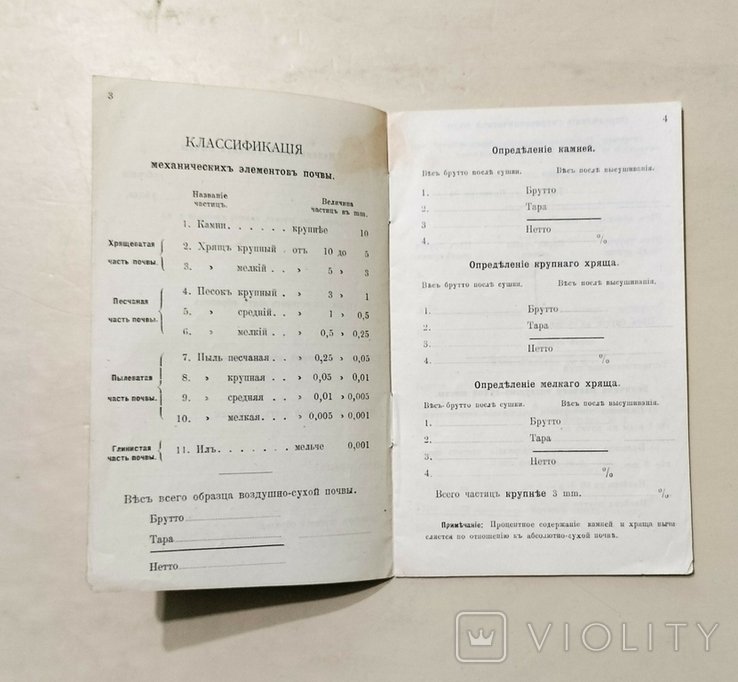 3
КЛАССИФИКАЦІЯ
механическихъ элементовъ почвы.
Названіе частицъ. Величина частицъ въ mm.
1. Камни . . . . . . крупнѣе 10
Хрящеватая часть почвы.
2. Хрящъ крупный . отъ 10 до 5
3. » мелкій . . » 5 » 3
Песчаная часть почвы.
4. Песокъ крупный . . » 3 » 1
5. » средній . . » 1 » 0,5
6. » мелкій . . » 0,5 » 0,25
Пылеватая часть почвы.
7. Пыль песчаная . . » 0,25 » 0,05
8. » крупная . . » 0,05 » 0,01
9. » средняя . . » 0,01 » 0,005
10. » мелкая . . » 0,005 » 0,001
Глинистая часть почвы.
11. Илъ . . . . . . мельче 0,001
Вѣсъ всего образца воздушно-сухой почвы.
Брутто
Тара
Нетто
4
Опредѣленіе камней.
Вѣсъ брутто послѣ сушки. Вѣсъ послѣ высушиванія.
1. Брутто
2. Тара
3. Нетто
4. %
Опредѣленіе крупнаго хряща.
Вѣсъ брутто послѣ сушки. Вѣсъ послѣ высушиванія.
1. Брутто
2. Тара
3. Нетто
4. %
Опредѣленіе мелкаго хряща.
Вѣсъ брутто послѣ сушки. Вѣсъ послѣ высушиванія.
1. Брутто
2. Тара
3. Нетто
4. %
Всего частицъ крупнѣе 3 mm. %
Примѣчаніе: Процентное содержаніе камней и хряща вычи
сляется по отношенію къ абсолютно-сухой почвѣ.
VIOLITY